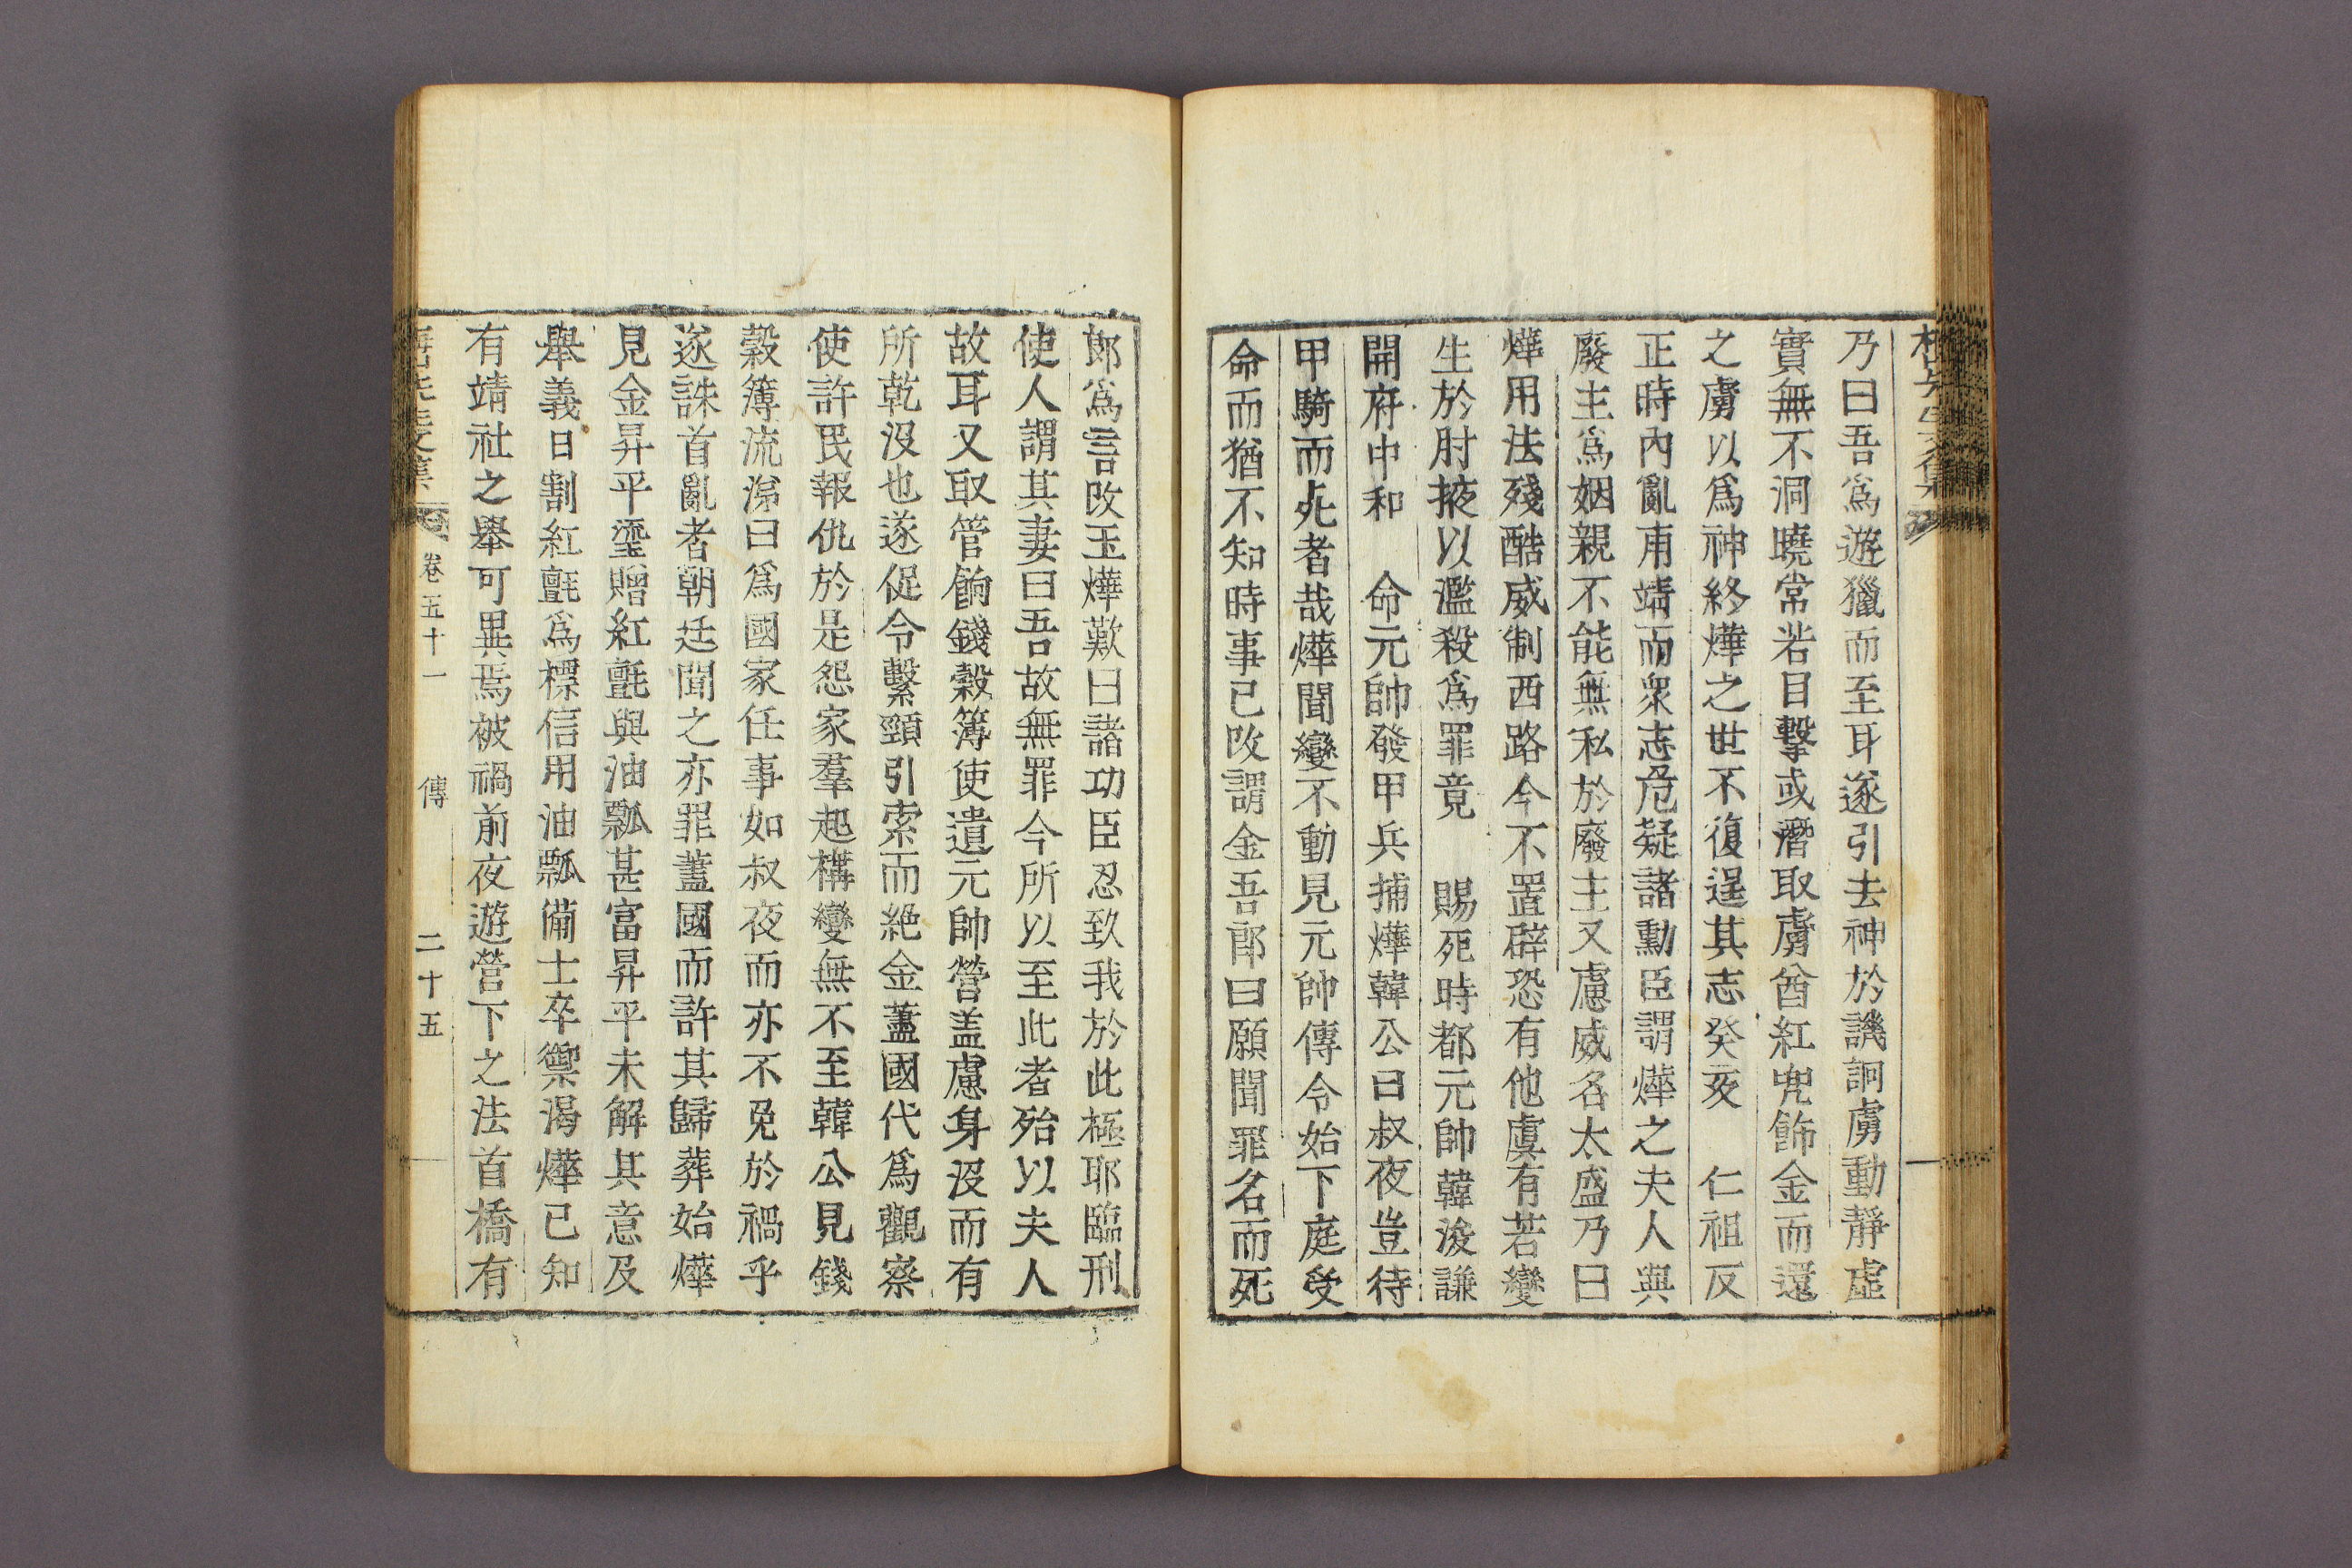 乃曰吾爲遊獵而至耳遂引去神於譏詗虜動靜虛
實無不洞曉常若目擊或潛取虜酋紅兜飾金而還
之虜以爲神終燁之世不復逞其志癸亥 仁祖反
正時內亂甫靖而衆志危疑諸勳臣謂燁之夫人與
廢主爲姻親不能無私於廢主又慮威名太盛乃曰
燁用法殘酷威制西路今不置辟恐有他虞有若變
生於肘掖以濫殺爲罪竟 賜死時都元帥韓浚謙
開府中和 命元帥發甲兵捕燁韓公曰叔夜豈待
甲騎而死者哉燁聞變不動見元帥傳令始下庭受
命而猶不知時事已改謂金吾郎曰願聞罪名而死
郞爲言改玉燁歎曰諸功臣忍致我於此極耶臨刑
使人謂其妻曰吾故無罪今所以至此者殆以夫人
故耳又取管餉錢穀簿使遺元帥營盖慮身沒而有
所乾沒也遂促令繫頸引索而絶金藎國代爲觀察
使許民報仇於是怨家羣起構變無不至韓公見錢
穀簿流涕曰爲國家任事如叔夜而亦不免於禍乎
遂誅首亂者朝廷聞之亦罪藎國而許其歸葬始燁
見金昇平瑬贈紅氈與油瓢甚富昇平未解其意及
舉義日割紅氈爲標信用油瓢備士卒禦渴燁已知
有靖社之舉可異焉被禍前夜遊營下之法首橋有
卷五十一 傳 二十五